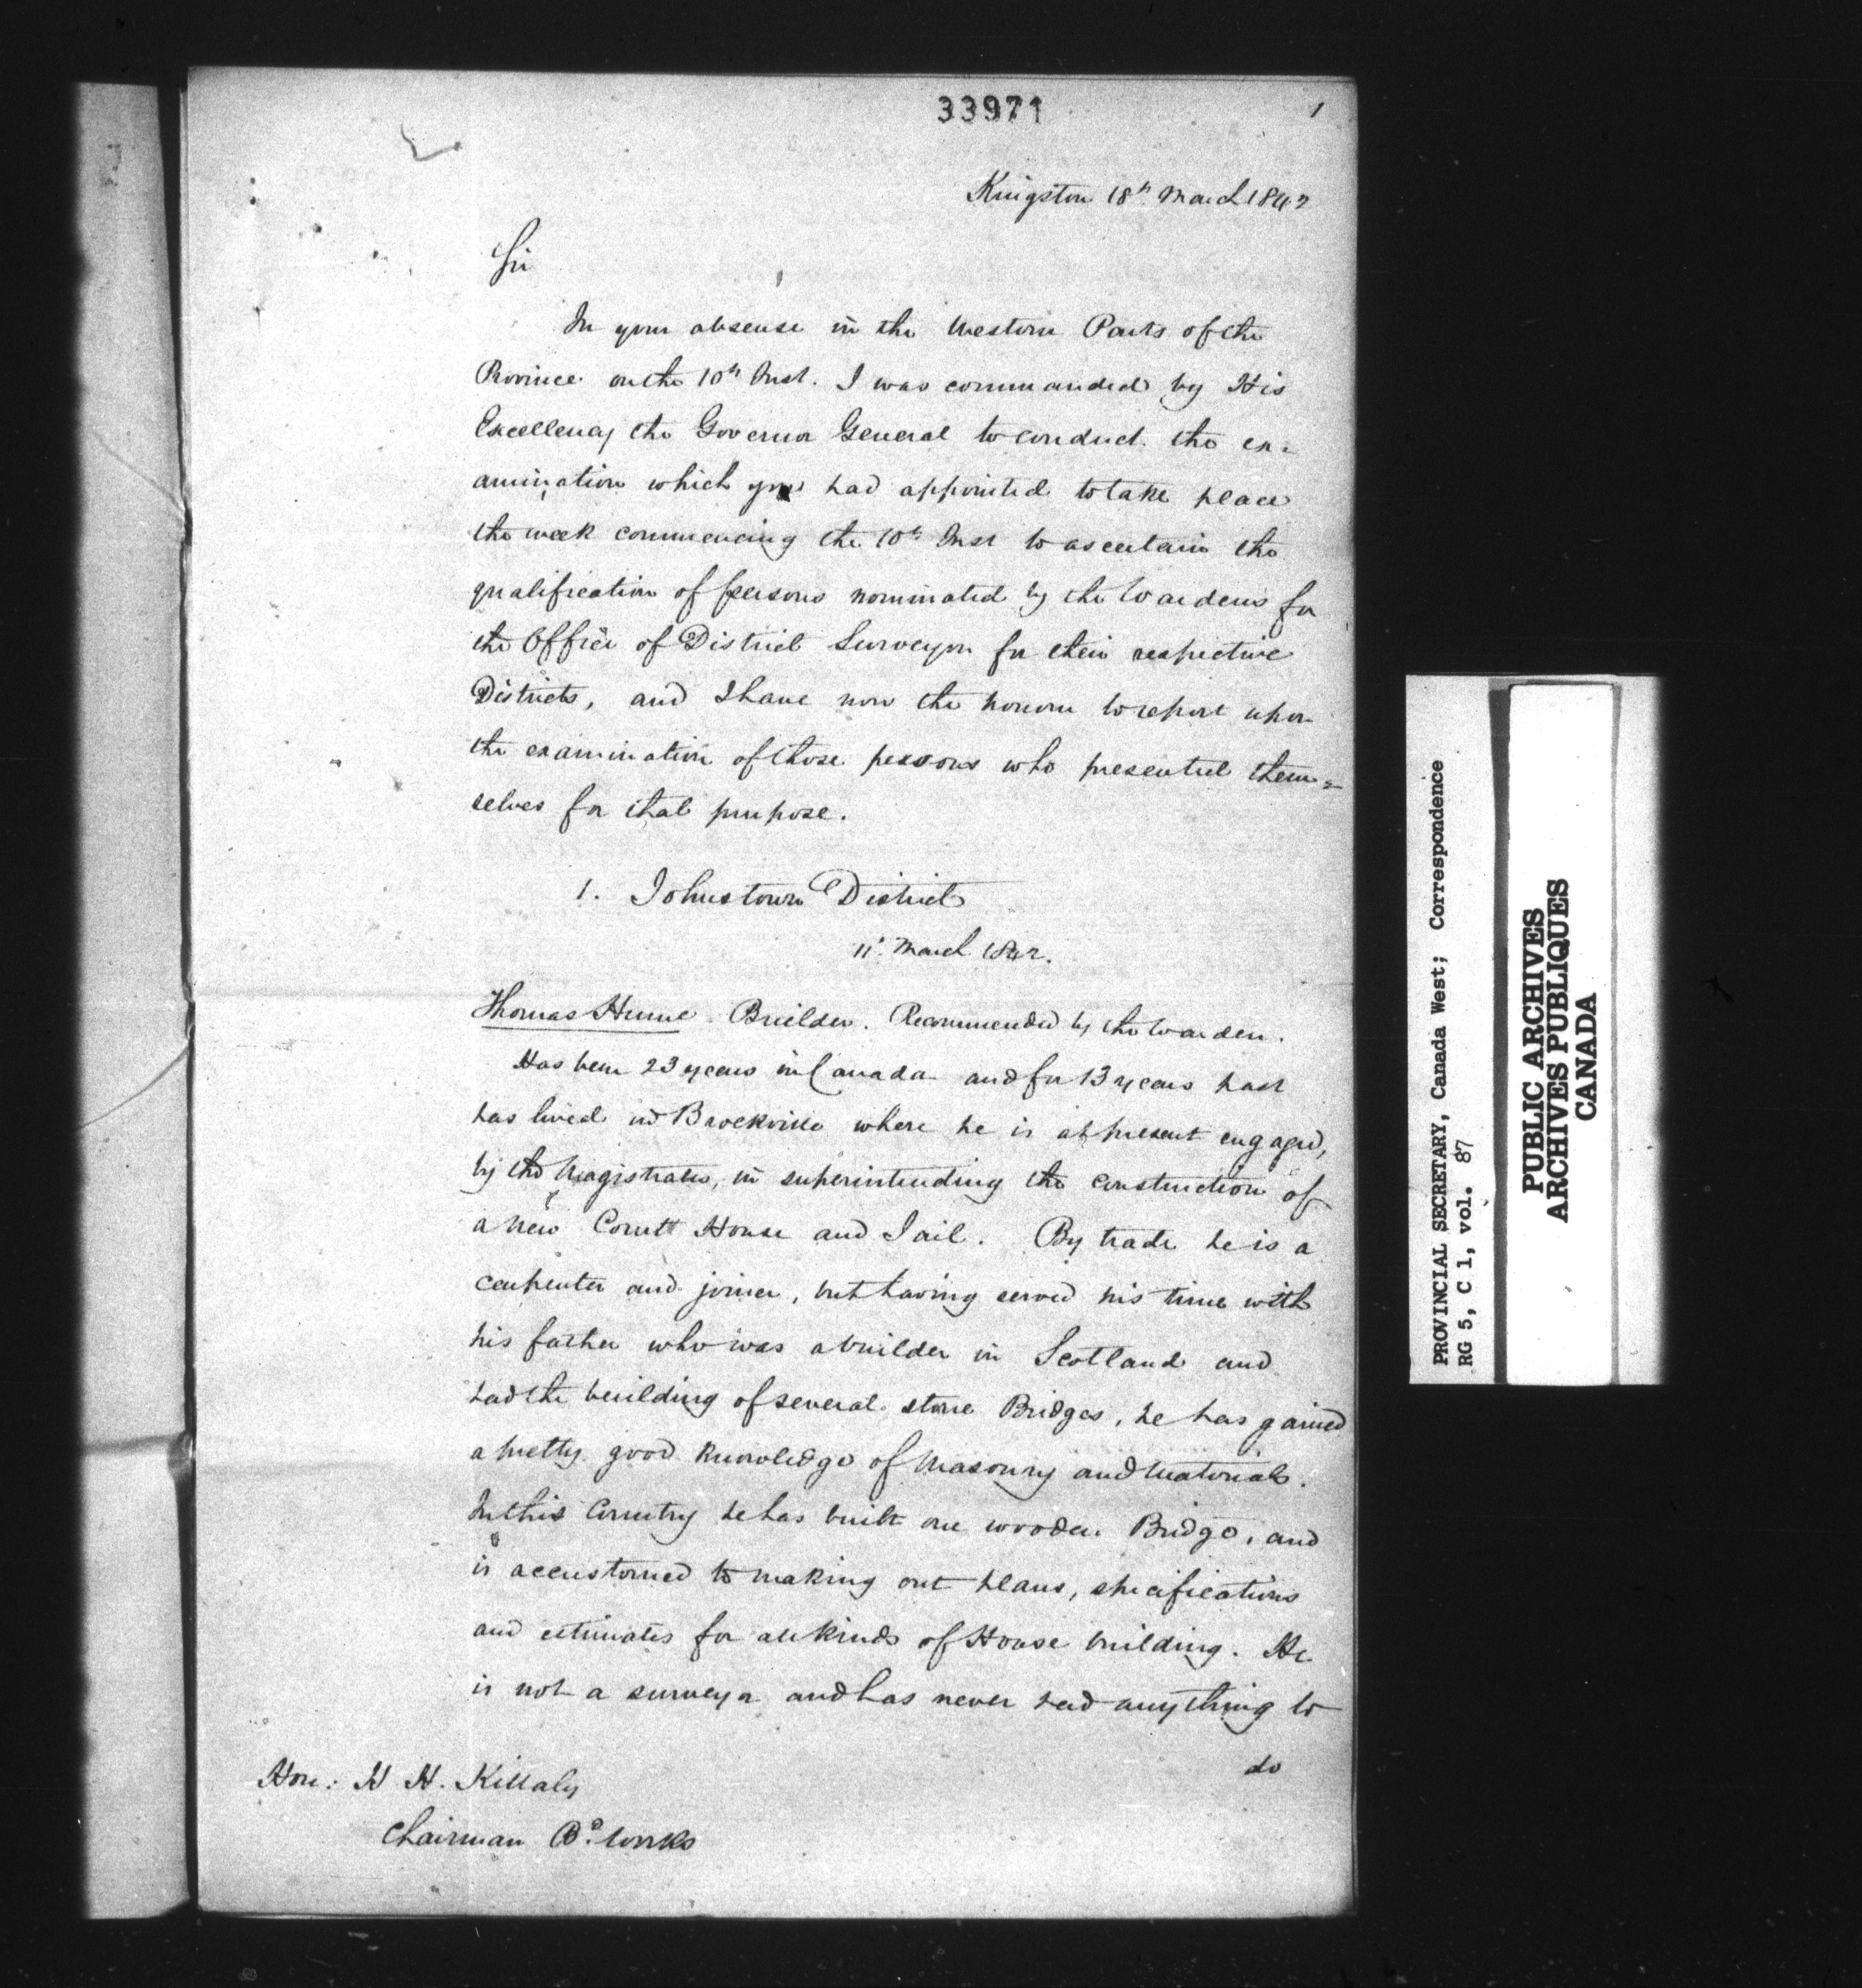 33971
1
Kingston 18th March 1842
Sir
In your absense in the Western Parts of the
Province on the 10th Inst. I was commanded by His
Excellency the Governor General to conduct the ex=
amination which you had appointed to take place
the week commencing the 10th Inst to ascertain the
qualification of persons nominated by the Wardens for
the Office of District Surveyor for their respective
Districts, and I have now the honour to report upon
the examination of those persons who presented them=
selves for that purpose.
1. Johnstown District
11th March 1842.
Thomas Hume Builder. Recommended by the Warden.
Has been 23 years in Canada and for 13 years past
has lived in Brockville where he is at present engaged,
by the Magistrates, in superintending the construction of
a new Court House and Jail. By trade he is a
carpenter and joiner, but having served his time with
his father who was a builder in Scotland and
had the building of several stone Bridges, he has gained
a pretty good knowledge of Masonry and Materials.
In this Country he has built one wooden Bridge, and
is accustomed to making out plans, specifications
and estimates for all kinds of House building. He
is not a surveyor and has never had anything to
do
Hon: H H. Killaly
Chairman Bd. Works
PROVINCIAL SECRETARY, Canada West; Correspondence
RG 5, C 1, vol. 87
PUBLIC ARCHIVES
ARCHIVES PUBLIQUES
CANADA